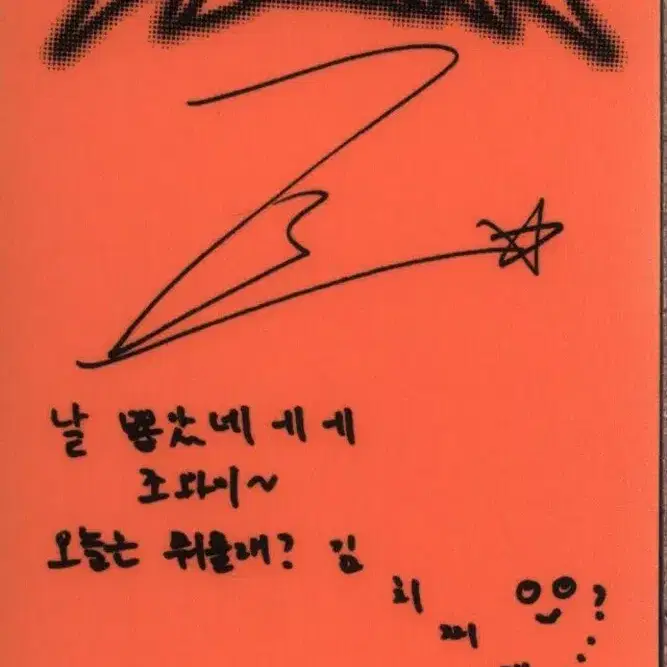 날 뽑았네 에 에
조와이~
오늘은 뭐할래? 김
치
찌
?